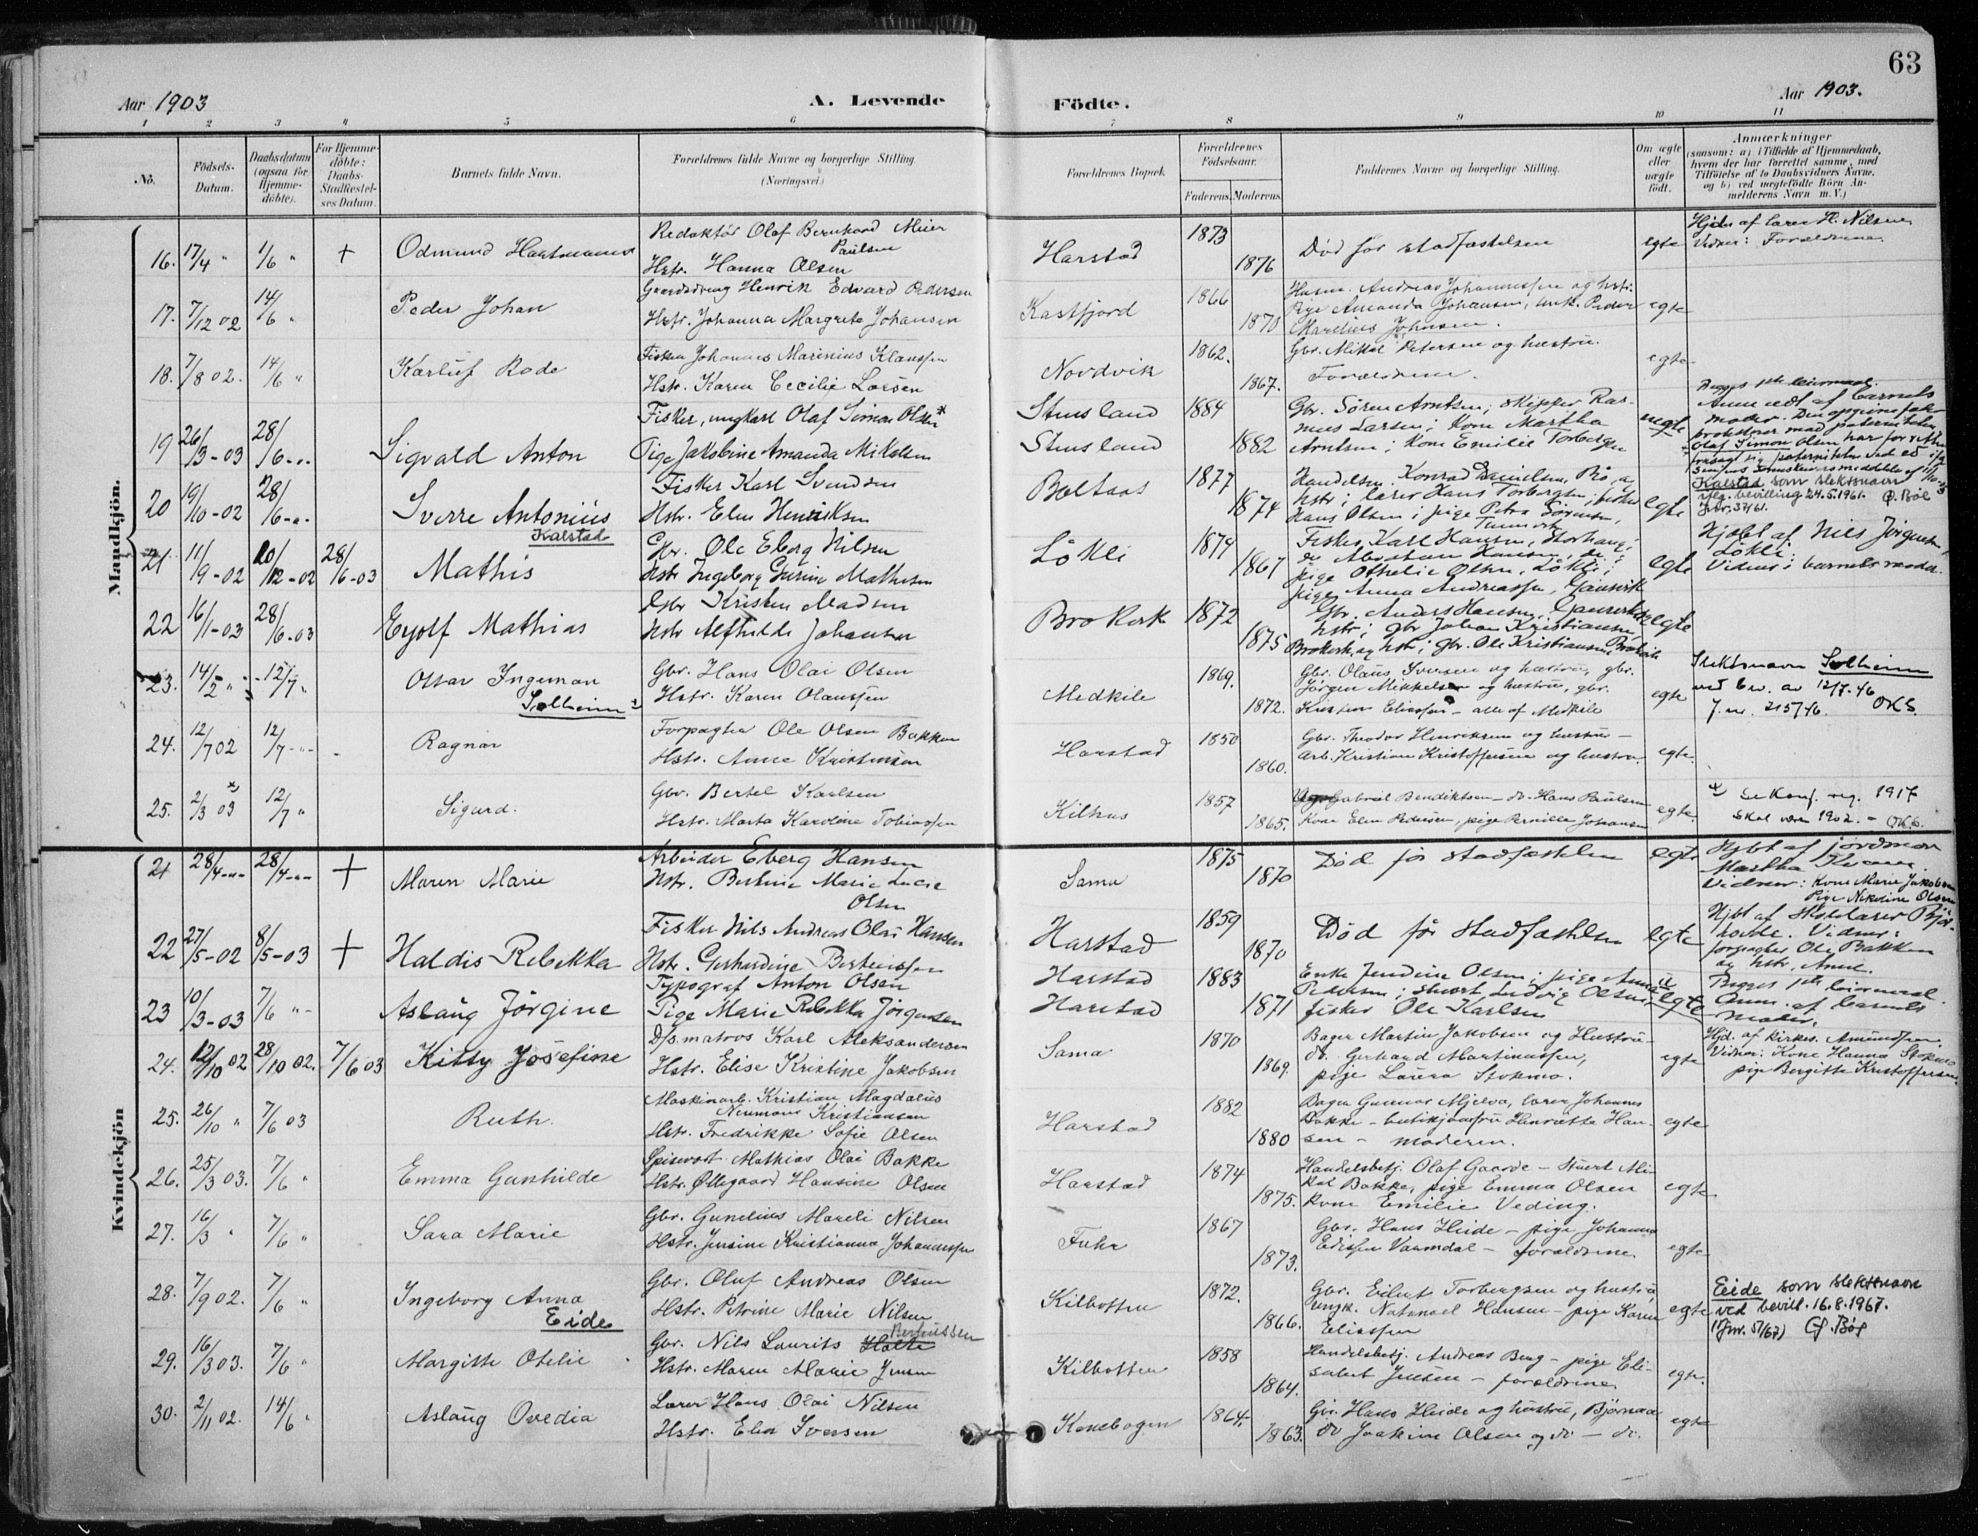 63
Aar 1903
A. Levende
Födte.
Aar 1903.
1 2 3 4 5 6 7 8 9 10 11
No.
Födsels-
Datum.
Daabsdatum
(ogsaa for
Hjemme-
döbte).
For Hjemme-
döbte:
Daabs-
Stadfæstel-
ses Datum.
Barnets fulde Navn.
Forældrenes fulde Navne og borgerlige Stilling.
(Næringsvei.)
Forældrenes Bopæl.
Forældrenes
Födselsaar.
Faderens. Moderens.
Faddernes Navne og borgerlige Stilling.
Om ægte
eller
uægte
födt.
Anmærkninger
(saasom: a) i Tilfælde af Hjemmedaab,
hvem der har forrettet samme, med
Tilföielse af to Daabsvidners Navne,
og b) ved uægtefödte Börn An-
melderens Navn m. V.)
Mandkjön.
16. 17/4 " 1/6 " + Odmund Hartmann
Redaktør Olaf Bernhard Meier
Paulsen
Hstr. Hanna Olsen
Harstad 1873 1876
Død før stadfæstelsen
egte
Hjd. af lærer H. Nilsen
Vidner: Forældrene
17. 7/12 02 14/6 " Peder Johan
Gaardsdreng Henrik Edvard Pedersen
Hstr. Johanna Margrete Johansen
Kastfjord 1866 1870
Husm. Andreas Johannessen og hstr.
Pige Amanda Johansen, ungk. Peder
Marelius Johnsen.
egte
18. 7/8 02. 14/6 " Karluf Rode
Fisker Johannes Marinius Klaussen
Hstr. Karen Cecilie Larsen
Nordvik 1862. 1867.
Gbr. Mikal Petersen og hustru.
Forældrene.
egte
19 26/3-03 28/6-" Sigvald Anton
Fisker, ungkarl Olaf Simon Olsen *
Pige Jakobine Amanda Mikalsen
Stensland
Stensland
1884 1882
Gbr. Sören Arntsen; skipper Ras-
mus Larsen; Kone Martha
Arntsen; Kone Emilie Torbergsen
uegte
Begges 1ste leiermaal.
Anm. edf. af barnets
moder. Den opgivne far
20 19/10-02 28/6-" Sverre Antonius
Kalstad
Fisker Karl Svendsen
Hstr. Elen Henriksen
Bøltaas 1877 1874
Handelsm. Konrad Danielsen, Rö, og
hstr; lærer Hans Torbergsen; fisker
Hans Olsen; pige Petra Sörensen,
egte
Kalstad som slektsnavn
iflg. bevilling 24.5.1961. Ø. Böe
21. 11/9-02 20/12-02 28/6-03 Mathis
Gbr. Ole Eberg Nilsen
Hstr Ingeborg Mathisen
Løkli 1874 1867
Fisker Karl Hansen, Storhaug;
do Abraham Hansen, do;
pige Othelie Olsen, Løkli;
pige Anna Andreassen, Gausvik
egte
Hjdbt af Nils Jörgensen,
Løkli:
Vidner: barnets moder.
22 16/1-03 28/6-03 Eyolf Mathias
Gbr Kristen Madsen
Hstr Alfhilde Johansen
Brokvik 1872 1875
Gbr. Anders Hansen, Gausvik og
hstr; gbr Johan Kristiansen,
Brokvik og hstr; gbr. Ole Kristiansen, Brokvik
egte
23. 14/2 " 12/7 " Ottar Ingeman
Solheim
Gbr. Hans Olai Olsen
Hstr. Karen Olaussen
Medkile 1869. 1872.
Gbr. Olaus Iversen og hustru, gbr.
Jørgen Mikkelsen og hustru, gbr.
Kristen Eliassen – alle af Medkile
egte
Slektsnavn Solheim
ved bev. av 12/7-46
J. nr. 215/46. OKS.
24. 12/7 02 12/7 -"- Ragnar
Forpagter Ole Olsen Bakken
Hstr. Anne Kristensen
Harstad 1850 1860.
Gbr. Theodor Henriksen og hustru –
Arb. Kristian Kristoffersen og hustru.
egte.
25. 2/3 03 x) 12/7 " Sigurd.
Gbr. Bertel Karlsen
Hstr. Marta Karoline Tobiassen
Kilhus 1857 1865.
Gabriel Bendiktsen – do. Hans Paulsen
Kone Elen Pedersen, pige Pernille Johansen
egte
x) Se Konf. reg. 1917
Skal være 1902. – OKS.
Kvindekjön
21 28/4-"- 28/4-"- + Maren Marie
Arbeider Eberg Hansen
Hstr. Bertine Marie Lucie
Olsen
Sama 1875 1870
Död før stadfæstelsen
egte
Hjdbt af jordmor
Martha
Vidner: Kone Marie Jakobsen
Pige Nikoline Olsen
22 27/5-02 8/5-03 + Haldis Rebekka
Fisker Nils Andreas Olai Hansen
Hstr. Gerhardine Berteussen
Harstad 1859 1870
Död før stadfæstelsen
egte
Vidner:
forpagter Ole Bakken
og hstr, Anne.
23 10/3-03 7/6 " Aslaug Jörgine
Typograf Anton Olsen
Pige Marie Rebekka Jörgensen
Harstad
Harstad
1883 1871
Enke Jendine Olsen; pige
Pedersen; stuert Ludvig Olsen,
fisker Ole Karlsen
uegte
Begges 1ste leiermaal.
Anm. af barnets
moder.
24. 12/10 02 28/10 02. 7/6 03 Kitty Josefine
D/s. matros Karl Aleksandersen
Hstr. Elise Kristine Jakobsen
Sama 1870 1869.
Bager Martin Jakobsen og Hustru –
do. Gerhard Martinussen,
pige Laura Stokmo.
egte
Hjd. af kirkes. Amundsen.
Vidner: Kone Hanna Stokmo
pige Bergitte Kristoffersen.
25. 26/10 " 7/6 03 Ruth.
Maskinarb. Kristian Magdalus
Neumann Kristiansen
Hstr. Fredrikke Sofie Olsen
Harstad 1882 1880
Bager Gunnar Mjelva, lærer Johannes
Bakke – butikjomfru Henriette Han-
sen – moderen.
egte
26. 25/3 03. 7/6 " Emma Gunhilde
Spisevert Mathias Olai Bakke
Hstr. Øllegaard Hansine Olsen
Harstad 1874 1875.
Handelsbetj. Olaf Gaarde – Stuert Mi-
kal Bakke, pige Emma Olsen
Kone Emilie Veding.
egte
27. 16/3 " 7/6 " Sara Marie
Gbr. Gunelius Mareli Nilsen
Hstr. Jensine Kristianna Johannessen
Fuhr 1867 1873.
Gbr. Hans Heide – pige Johanna
Edissen Vaarmdal – forældrene.
egte
28. 7/9 02. 7/6 " Ingeborg Anna
Eide
Gbr. Oluf Andreas Olsen
Hstr. Petrine Marie Nilsen
Kilbotten 1872. 1866.
Gbr. Eilert Torbergsen og hustru
Ungk. Natanael Hansen – pige Karen
Eliassen
egte
Eide som slektsnavn
ved bevill. 16.8.1967.
(Jnr. 57/67) Ø. Böe
29. 16/3 03. 7/6 " Margitte Otelie
Gbr. Nils Laurits Holte Berteussen
Hstr. Maren Marie Jensen
Kilbotten 1858 1864.
Handelsbetj. Andreas Berg – pige Eli-
sabet Jensen – forældrene
egte.
30. 2/11 02. 14/6 " Aslaug Ovedia
Lærer Hans Olai Nilsen
Hstr. Elen Iversen
Konebogen 1864. 1863.
Gbr. Hans Heide og hustru, Bjørnaa
do Joakim Olsen og do – do.
egte